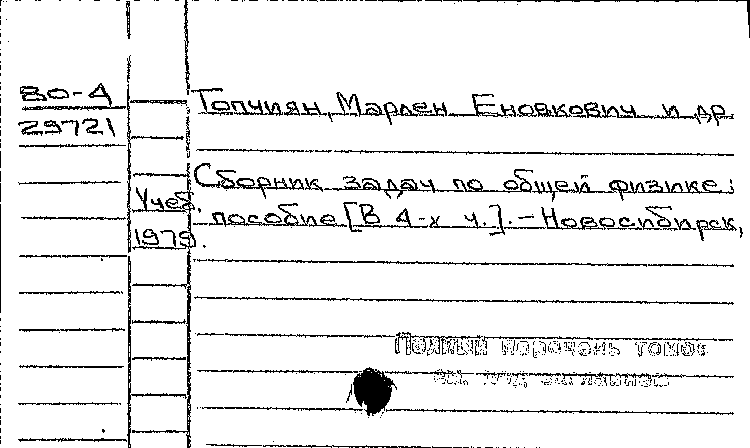 80-4
29721
Топчиян, Марлен Еновкович и др
Сборник задач по общей физике:
Учеб. пособие [В 4-х ч.]. - Новосибирск,
1979.
Полный перечень томов
см. под заглавием